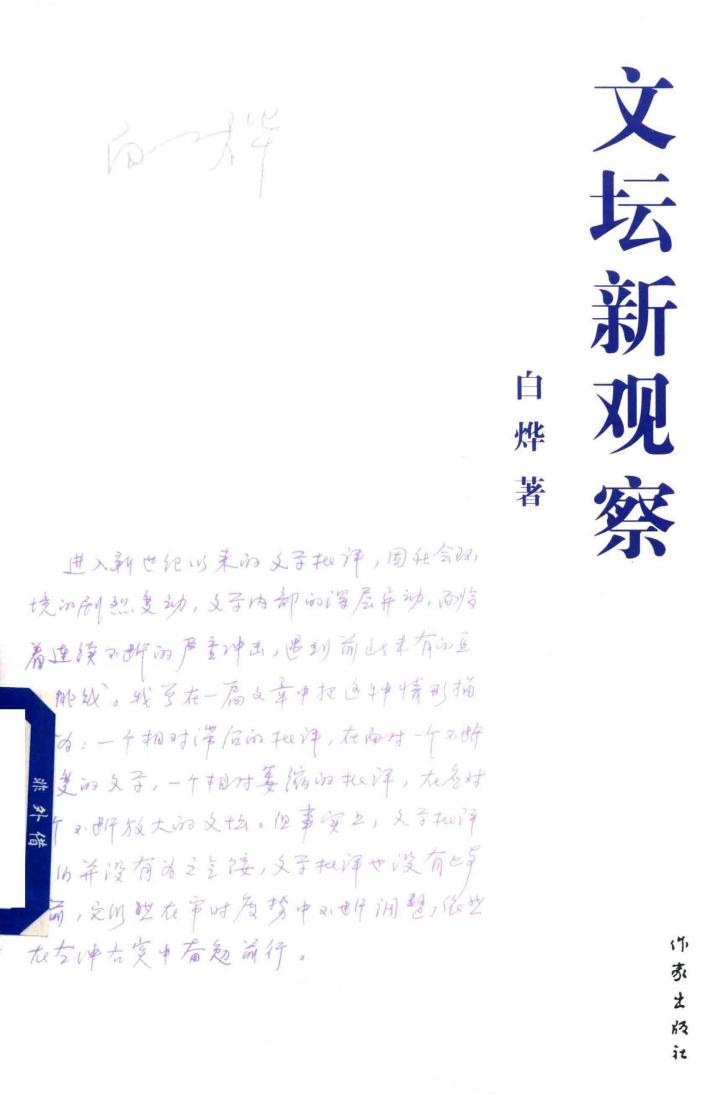 白烨
文坛新观察
白烨 著
进入新世纪以来的文学批评,因社会环
境的剧烈变动,文学内部的深层异动,面临
着连续不断的严重冲击,遇到前所未有的
挑战。我曾在一篇文章中把这种情形描
为:一个相对滞后的批评,在面对一个不断
变的文学,一个相对萎缩的批评,在应对
个不断放大的文坛。但事实上,文学批评
们并没有为之气馁,文学批评也没有止步
前,它仍然在审时度势中不断调整,依然
在左冲右突中奋勉前行。
非外借
作家出版社